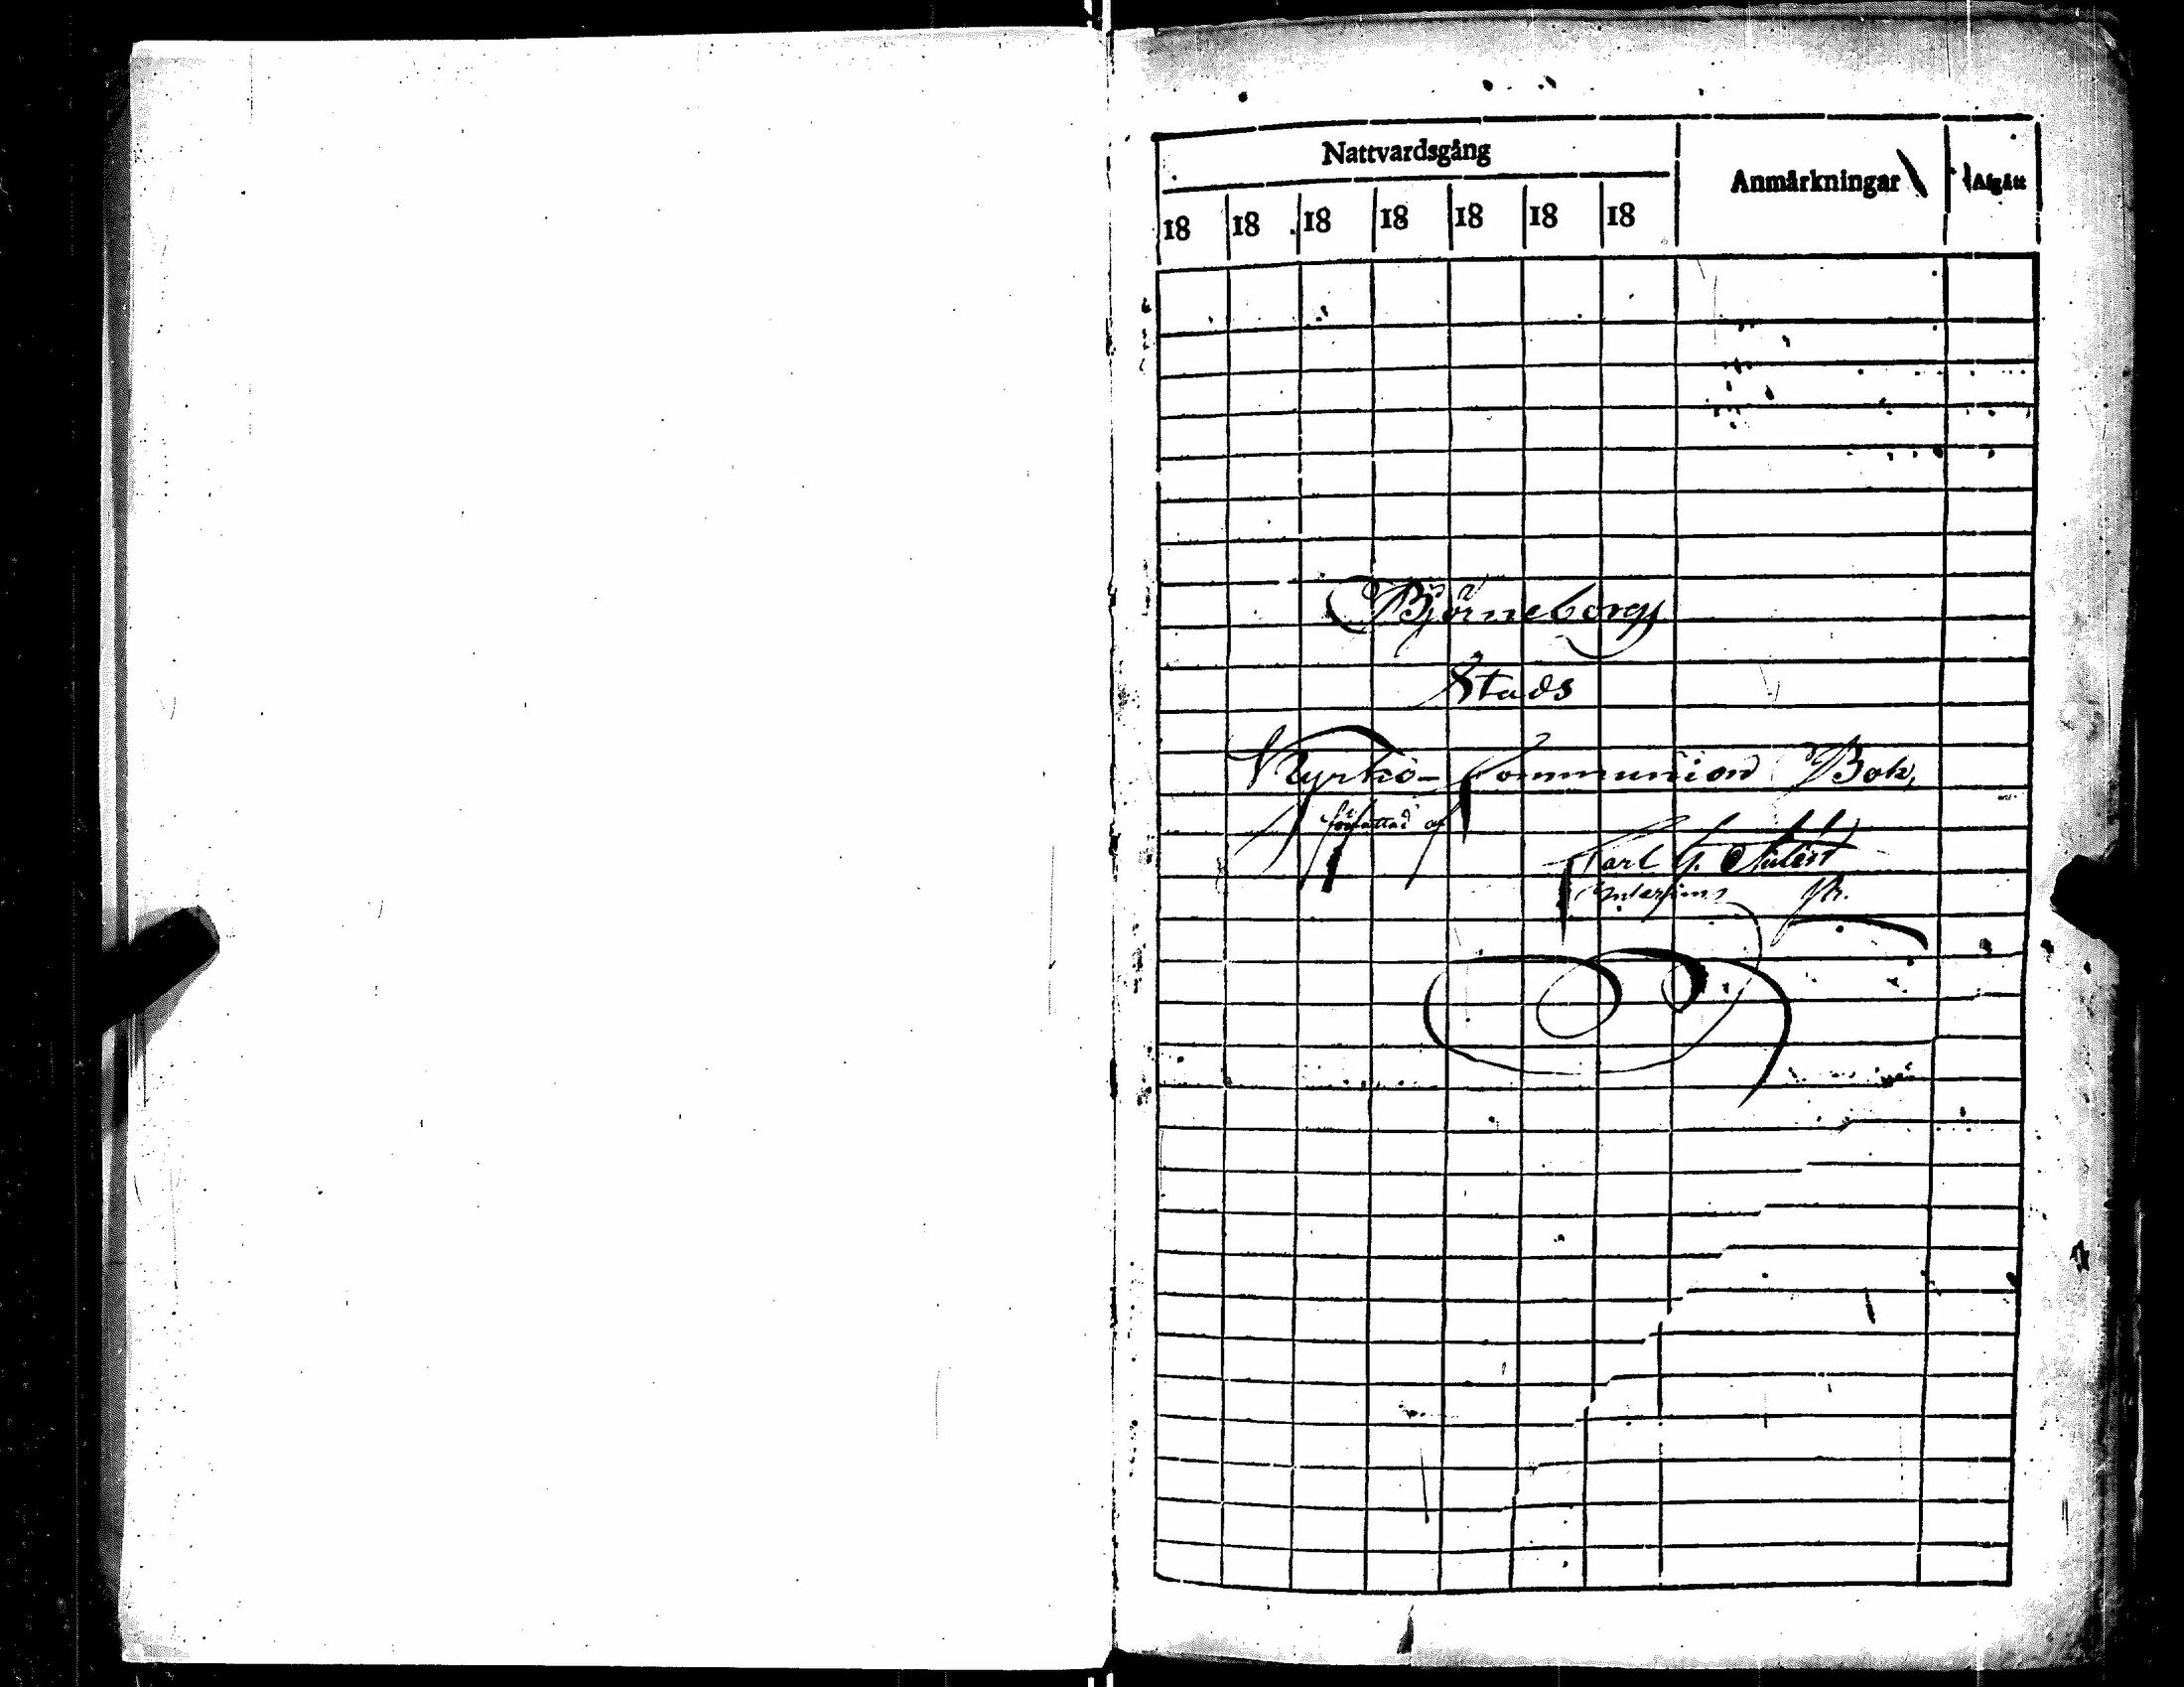 Nattvardsgång
Anmårkningar
Afgått
18 18 18 18 18 18 18
Björneborgs
Stads
Kyrko-Communion Bok,
författad af
Carl G.
Interims